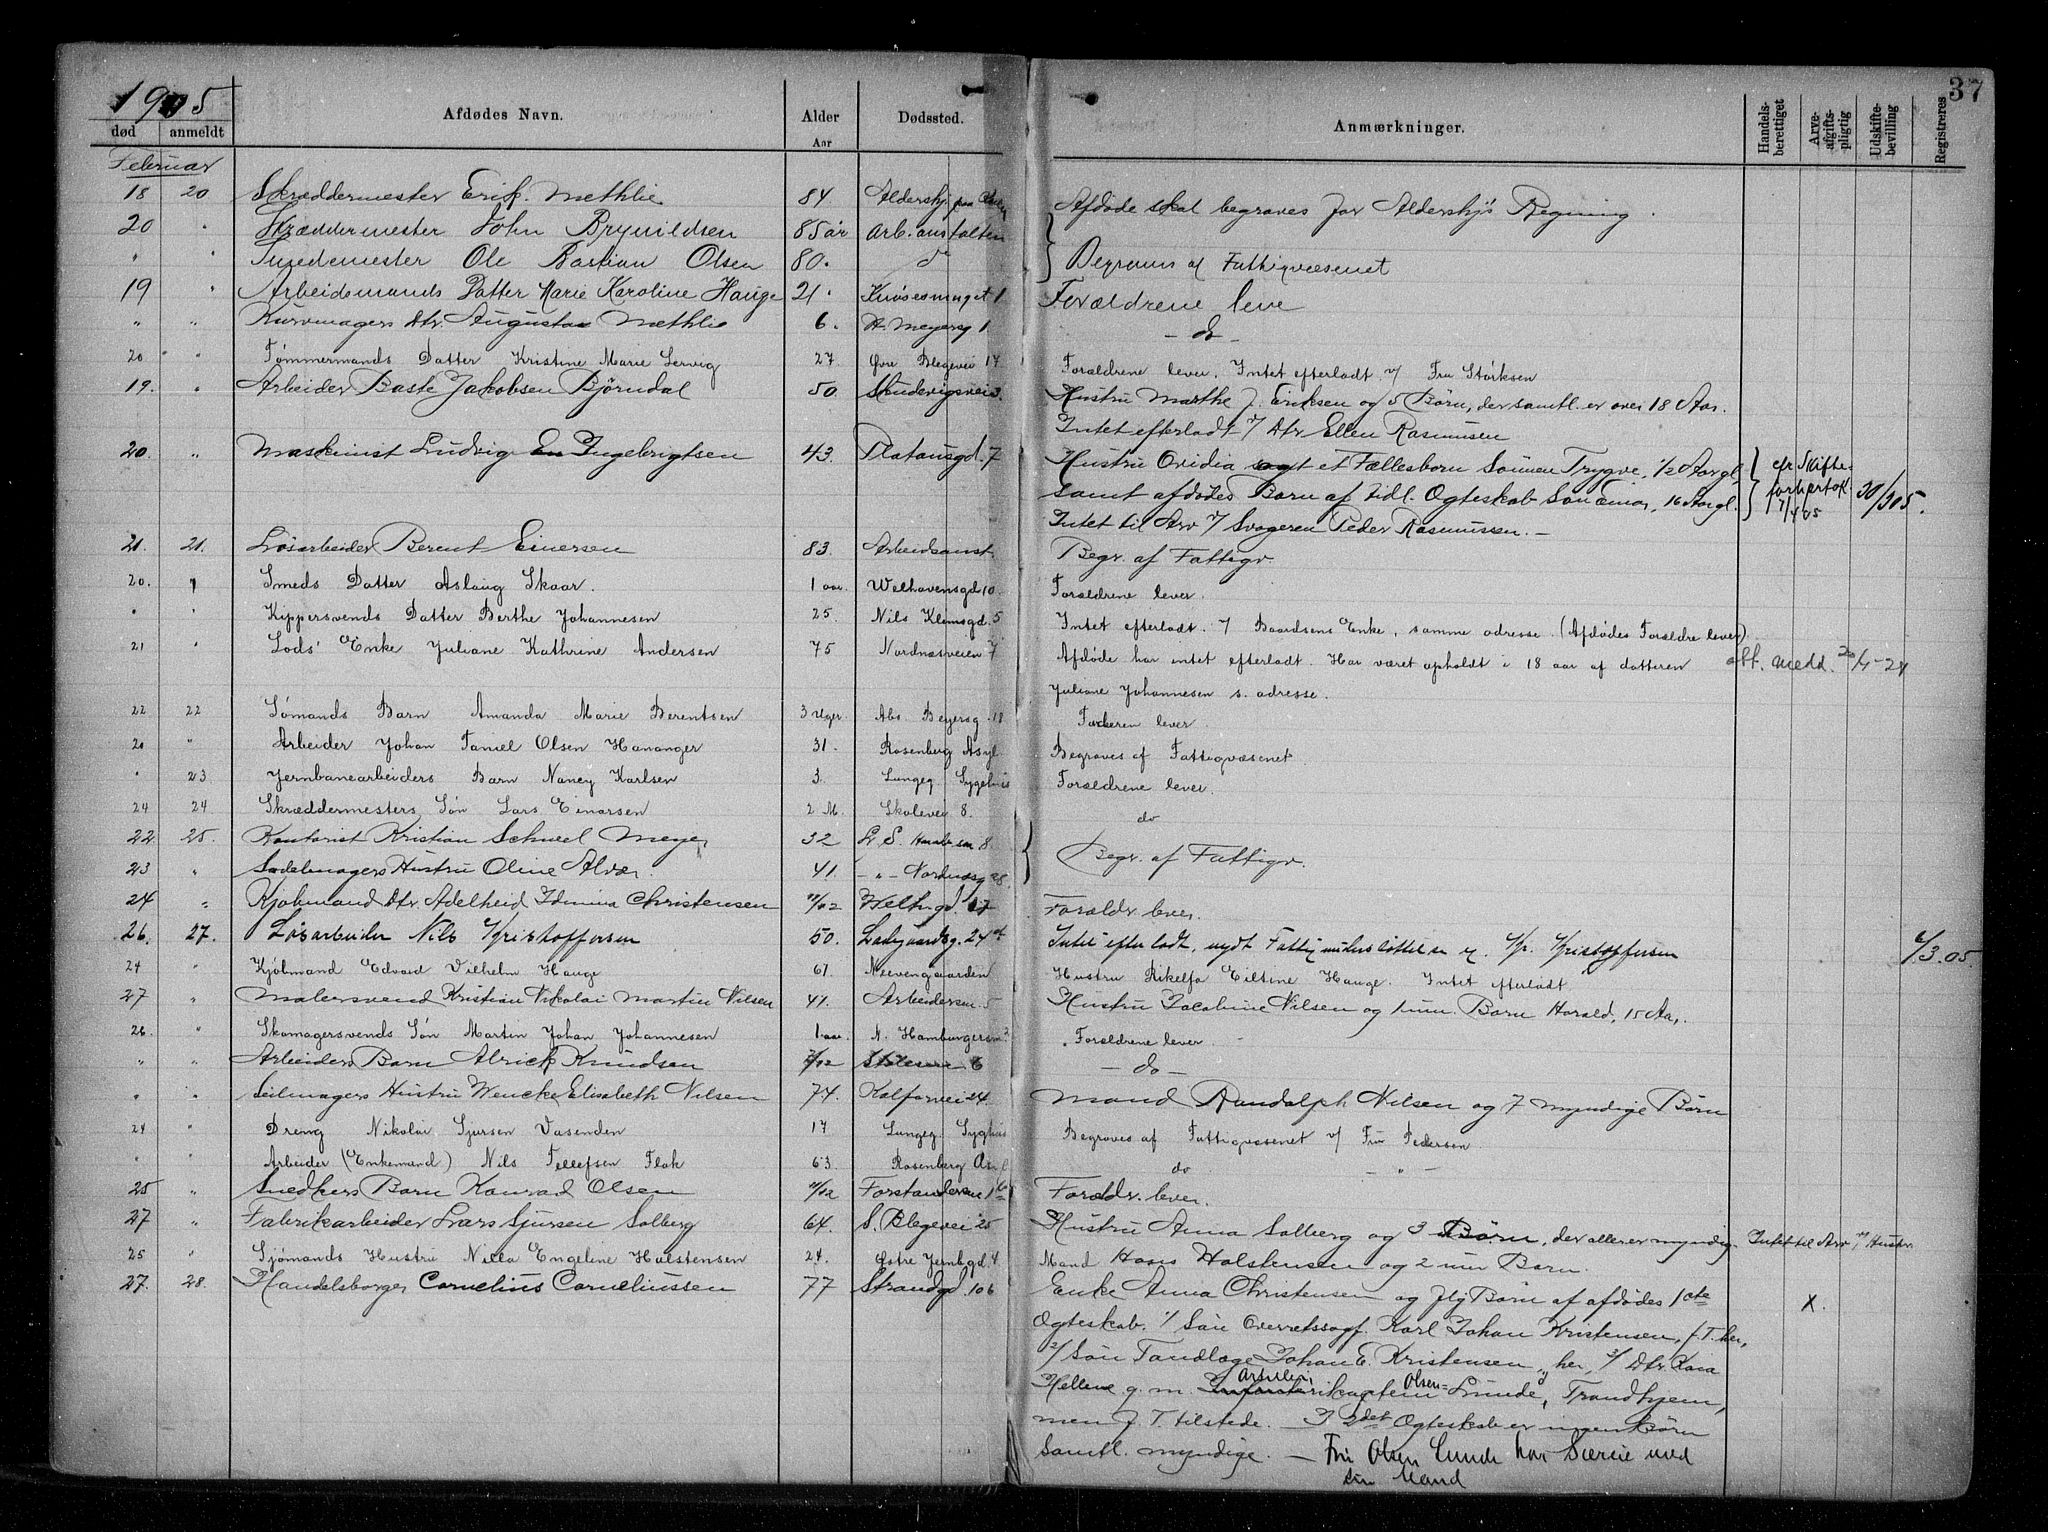 37
1905
død anmeldt Afdødes Navn. Alder Aar Dødssted. Anmærkninger. Handelsberettiget Arveafgiftspligtig Udskiftebevilling Registreres
Februar
18 20 Skræddermester Erik Methlie 84 Aldershj. Afdøde skal begraves for Aldershjs Regning.
20 " Skræddermester John Brynildsen 85 år Arb. anstalten
" " Smedemester Ole Bastian Olsen 80. do Begraves af Fattigvæsenet
19 " Arbeidsmands Datter Marie Karoline Hauge 21 " Knøsesmuget 1 Forældrene leve
" " Kurvmagers Dtr. Augusta Methlie 6. H. Meyersg 1 - do -
20 " " Tømmermands Datter Kristine Marie Lervig 27 Øvre Blegevei 17 Forældrene lever. Intet efterladt v/ Fru Størksen
19. " Arbeider Baste Jakobsen Bjørndal 50. Skudevigsvei 3. Hustru Marthe J. Eriksen og 5 Børn, der samtl. er over 18 Aar.
Intet efterladt v/ Dtr Ellen Rasmussen
20. " Maskinist Ludvig Ingebrigtsen 43. Platousgd. 7 Hustru Ovidia og et Fællesbarn Sønnen Trygve, 1/2 Aar gl., cfr Skifte-
samt afdødes Barn af tidl. Ægteskab Søn Einar, 16 Aar gl. forhørtok. 7/4 05 30/3 05.
Intet til Arv v/ Svogeren Peder Rasmussen. -
21. 21. Løsarbeider Berent Einersen 83. Arbeidsanst. Begr. af Fattigv.
20. " Smeds Datter Aslaug Skaar. 1 aar. Welhavensgd 10. Forældrene lever.
" " Kippersvends Datter Berthe Johannesen 25. Nils Klemsgd. 5 Intet efterladt. v/ Baardsens Enke, samme adresse. (Afdødes Forældre lever)
21 " Lods' Enke Juliane Kathrine Andersen 75 Nordnæsveien 7 Afdøde har intet efterladt. Har været opholdt i 18 aar af datteren att. medd. 20/5-24
Juliane Johannesen s. adresse.
22 22 Sømands Barn Amanda Marie Berentsen 3 Uger Abs. Beyersg. 18 Faderen lever.
20 " Arbeider Johan Daniel Olsen Hananger 31. Rosenberg Asyl Begraves af Fattigvæsenet
" 23. Jernbanearbeiders Barn Nancy Karlsen 3. Lungeg. Sygehus Forældrene lever.
24 24 Skræddermesters Søn Lars Einarsen 2 M. Skolevei 8. do
22 25. Kontorist Kristian Schneel Meyer 32 8
23 " Sadelmagers Hustru Oline Alvær. 41 - " - Nordnæsg 28. Begr. af Fattigv.
24 " Kjøbmand Dtr. Adelheid Idunna Christensen 11/12 Welhgd. 17 Forældr. lever.
26. 27. Løsarbeider Nils Kristoffersen 50. Ladegaardsg. 24 Intet efterladt, nydt Fattigunderstøttelse v. Kr. Kristoffersen 6/3 05.
24 " Kjøbmand Edvard Vilhelm Hauge 61 Neevengaarden Hustru Rikelfa Eiltine Hauge. Intet efterladt
27 " Malersvend Kristian Nikolai Martin Nilsen 41. Arbeidersm. 5 Hustru Jacobine Nilsen og 1 um. Barn Harald, 15 Aar.
26. " Skomagersvends Søn Martin Johan Johannesen 1 aar N. Hamburgersm. 2 Forældrene lever
" " Arbeiders Barn Alrick Knudsen Stølesm 6 - do -
" " Seilmagers Hustru Wencke Elisabeth Nilsen 74. Kalfarvei 24. Mand Randolph Nilsen og 7 myndige Børn
24 " Dreng Nikolai Sjursen Vasenden 17 Lungeg. Syghus Begraves af Fattigvæsenet v/ Fru Pedersen.
" " Arbeider (Enkemand) Nils Tellefsen Flok 63. Rosenberg Asyl do - " -
25 " Snedkers Barn Konrad Olsen 11/12 Forstandersm 1 Forældr. lever.
27 " Fabrikarbeider Lars Sjursen Solberg 64. S. Blegevei 25 Hustru Anna Solberg og 3 Børn, der alle er myndig. Intet til Arv, v/ Hustru
25 " Sjømands Hustru Nilla Engeline Halstensen 24. Østre Jernbgd. 4 Mand Hans Holstensen og 2 um Børn.
27. 28. Handelsborger Cornelius Corneliussen 77 Strandgd. 106 Enke Anna Christensen og flg Børn af afdødes 1ste X.
Ægteskab. 1/ Søn Overretssagf. Karl Johan Kristensen, f. T. her,
2/ Søn Tandlæge Johan E. Kristensen, her, 3/ Dtr. Kaia
Hellene g. m. Artileri Infanterikaptein Olsen-Lunde, Trondhjem,
men f. T. tilstede. - I 2det Ægteskab er ingen Børn
Samtl. myndige. - Fru Olsen Lunde har Særeie med
sin Mand